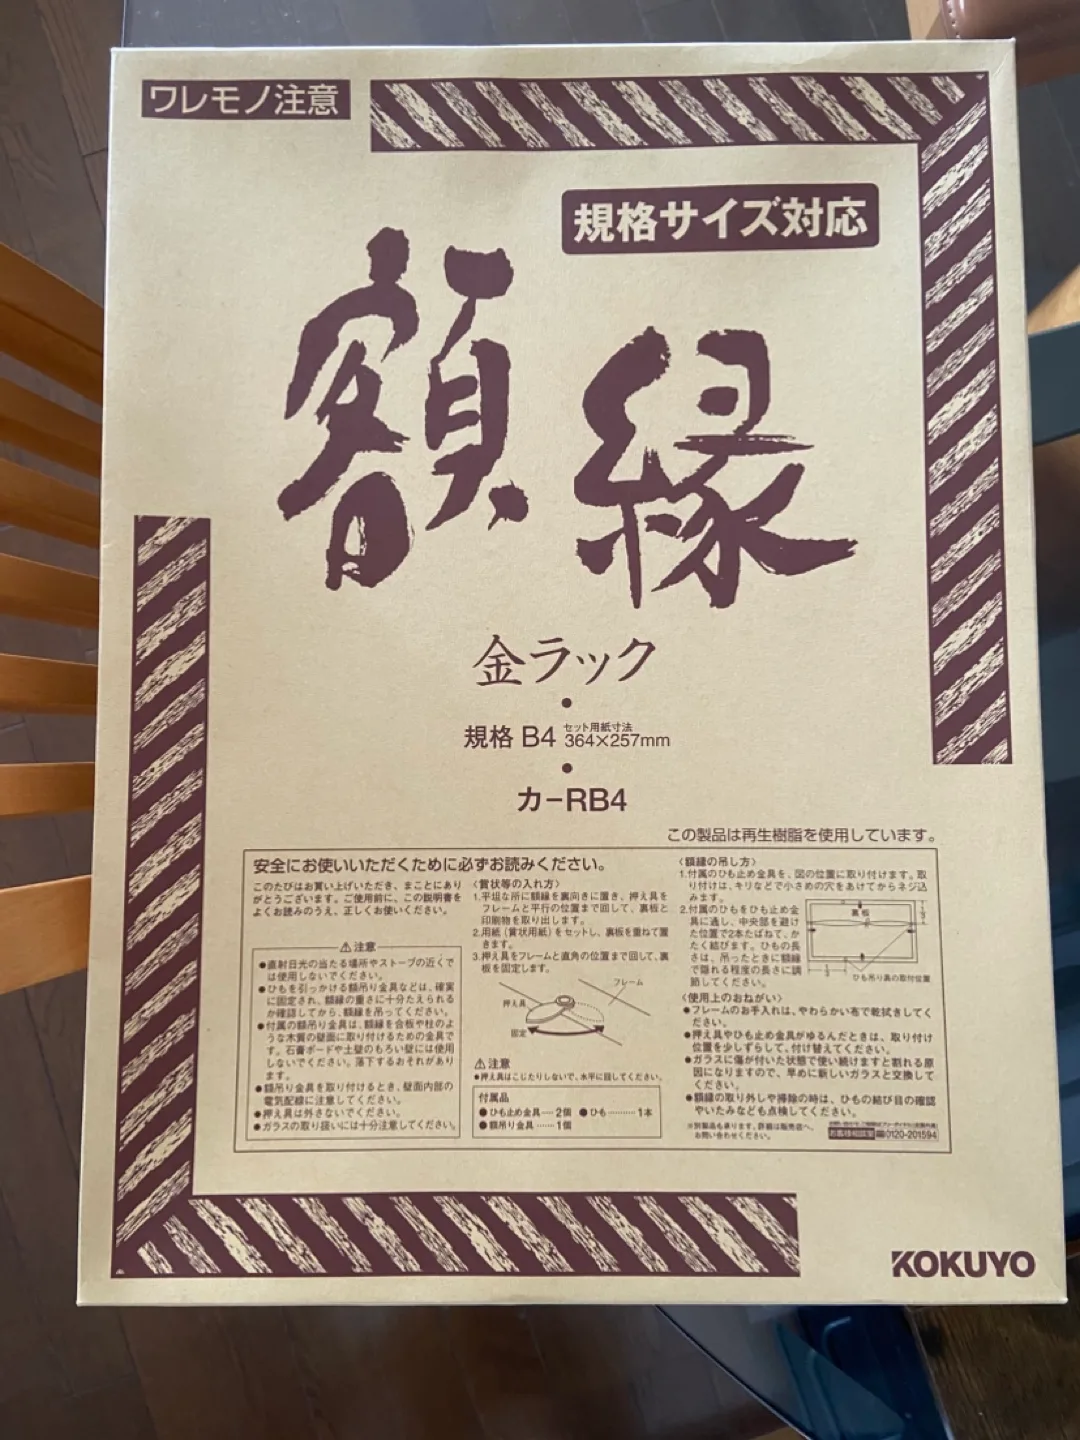 ワレモノ注意
規格サイズ対応
額縁
金ラック
規格 B4 セット用紙寸法 364×257mm
カ-RB4
この製品は再生樹脂を使用しています。
安全にお使いいただくために必ずお読みください。
このたびはお買い上げいただき、まことにあり
がとうございます。ご使用前に、この説明書を
よくお読みのうえ、正しくお使いください。
⚠注意
●直射日光の当たる場所やストーブの近くで
は使用しないでください。
●ひもを引っかける額吊り金具などは、確実
に固定され、額縁の重さに十分たえられる
か確認してから、額縁を吊ってください。
●付属の額吊り金具は、額縁を合板や柱のよ
うな木質の壁面に取り付けるための金具で
す。石膏ボードや土壁のもろい壁には使用
しないでください。落下するおそれがあり
ます。
●額吊り金具を取り付けるとき、壁面内部の
電気配線に注意してください。
●押え具は外さないでください。
●ガラスの取り扱いには十分注意してください。
〈賞状等の入れ方〉
1.平坦な所に額縁を裏向きに置き、押え具を
フレームと平行の位置まで回して、裏板と
印刷物を取り出します。
2.用紙(賞状用紙)をセットし、裏板を重ねて置
きます。
3.押え具をフレームと直角の位置まで回して、裏
板を固定します。
フレーム
押え具
固定
⚠注意
●押え具はこじたりしないで、水平に回してください。
付属品
●ひも止め金具‥‥2個 ●ひも‥‥‥‥1本
●額吊り金具‥‥‥1個
〈額縁の吊し方〉
1.付属のひも止め金具を、図の位置に取り付けます。取
り付けは、キリなどで小さめの穴をあけてからネジ込
みます。
2.付属のひもをひも止め金
具に通し、中央部を避け
た位置で2本たばねて、か
たく結びます。ひもの長
さは、吊ったときに額縁
で隠れる程度の長さに調
節してください。
裏板
1/3
1/3
ひも吊り具の取付位置
〈使用上のおねがい〉
●フレームのお手入れは、やわらかい布で乾拭きしてく
ださい。
●押え具やひも止め金具がゆるんだときは、取り付け
位置を少しずらして、付け替えてください。
●ガラスに傷が付いた状態で使い続けますと割れる原
因になりますので、早めに新しいガラスと交換して
ください。
●額縁の取り外しや掃除の時は、ひもの結び目の確認
やいたみなども点検してください。
※別製品も承ります。詳細は販売店へ、
お問い合わせください。
お客様相談室 0120-201594
KOKUYO